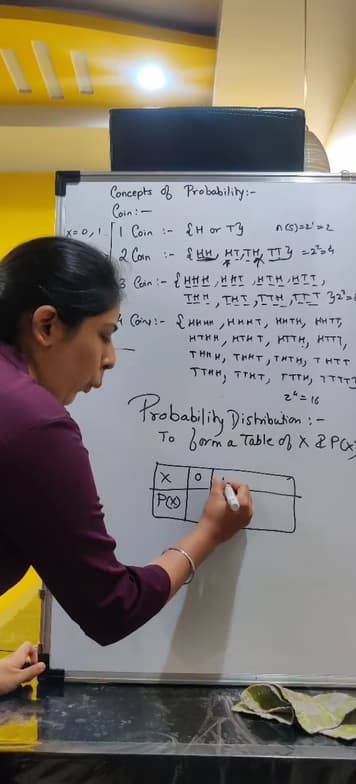 Concepts of Probability:-
Coin:-
x=0, 1 1 Coin :- {H or T} n(s)=2¹=2
2 Coin :- {HH, HT, TH, TT} =2²=4
3 Coin:- {HHH, HHT, HTH, HTT,
THH, THT, TTH, TTT} 2³=
4 Coins:- {HHHH, HHHT, HHTH, HHTT,
HTHH, HTHT, HTTH, HTTT,
THHH, THHT, THTH, THTT
TTHH, TTHT, TTTH, TTTT}
2⁴=16
Probability Distribution :-
To form a Table of X & P(x)
X 0
P(X)